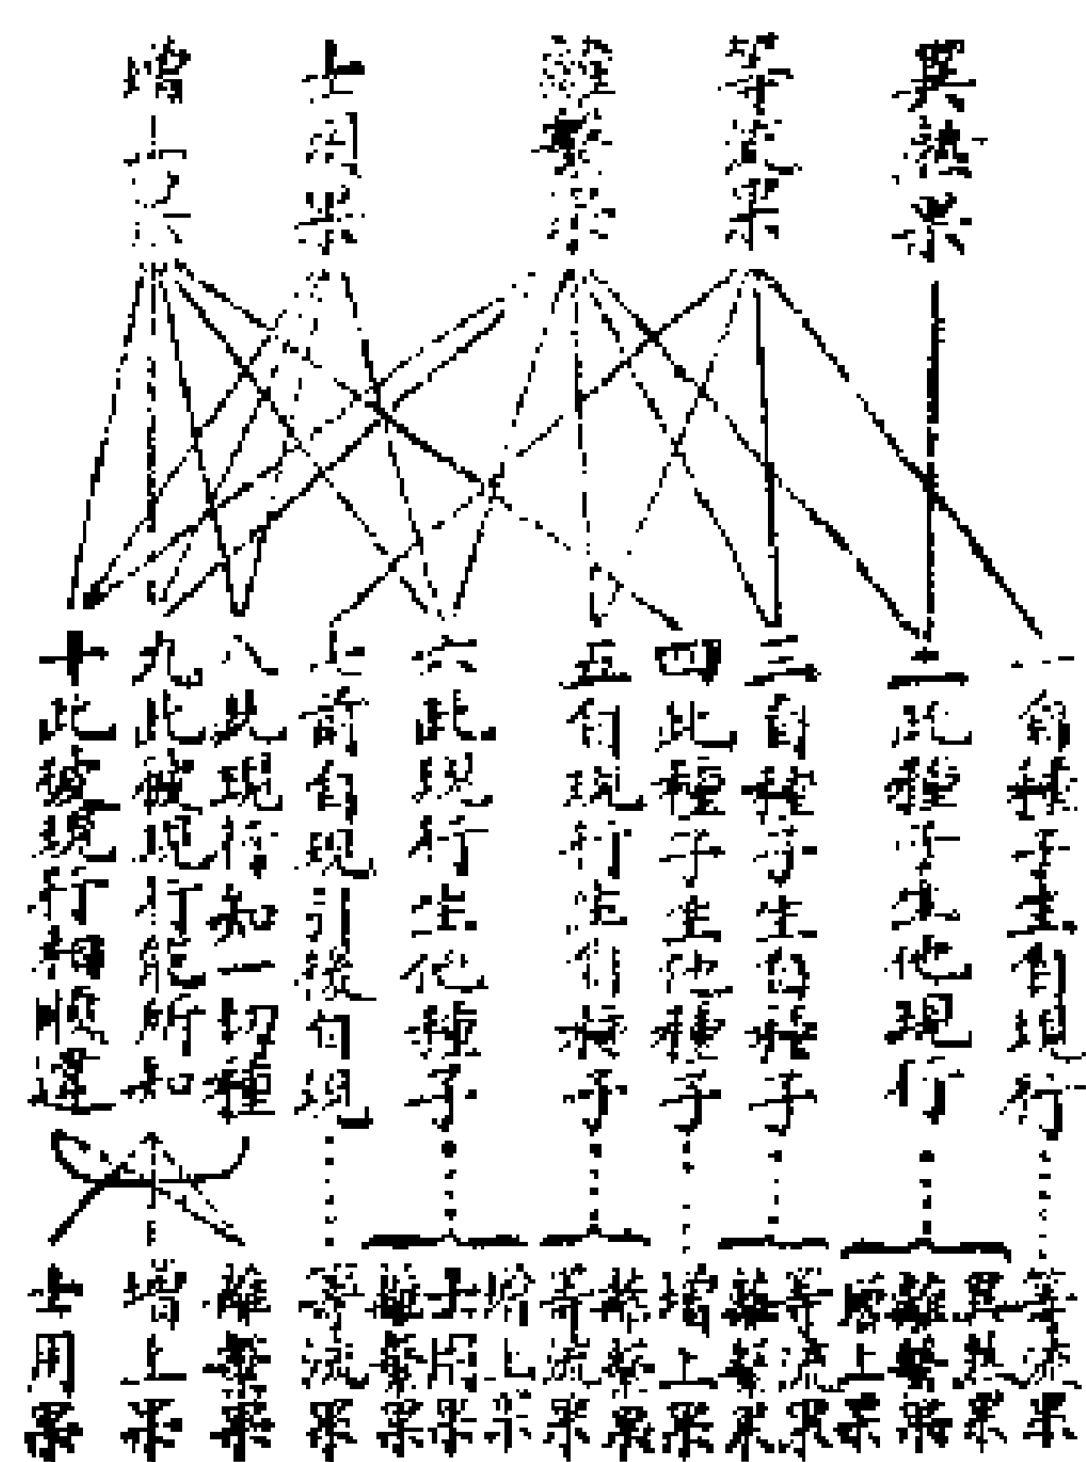 異熟果
等流果
離繫果
士用果
增上果
一自種子生自現行
二此種子生他現行
三自種子生自種子
四此種子生他種子
五自現行生自種子
六此現行生他種子
七前自現引後自現
八此現行知一切種
九此彼現行能所知
十此彼現行相順違
等流果
異熟果
離繫果
增上果
等流果
離繫果
增上果
離繫果
等流果
增上果
士用果
離繫果
等流果
離繫果
增上果
士用果